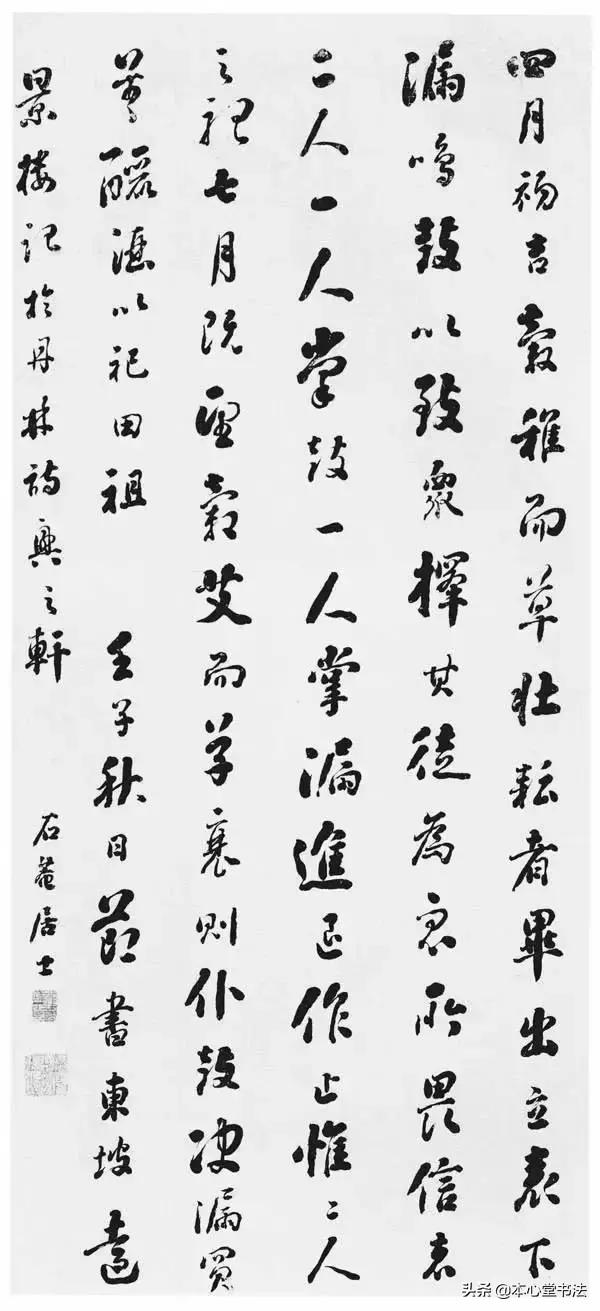 四月初吉穀稚而草壯耘者畢出立表下
漏鳴鼓以致衆擇其徒為衆所畏信者
二人一人掌鼓一人掌漏進退作止惟二人
之聽七月既望穀艾而草衰則仆鼓决漏買
釃以祀田祖 壬子秋日節書東坡遠
景樓記於丹林詩興之軒 石菴居士
头条 @本心堂书法